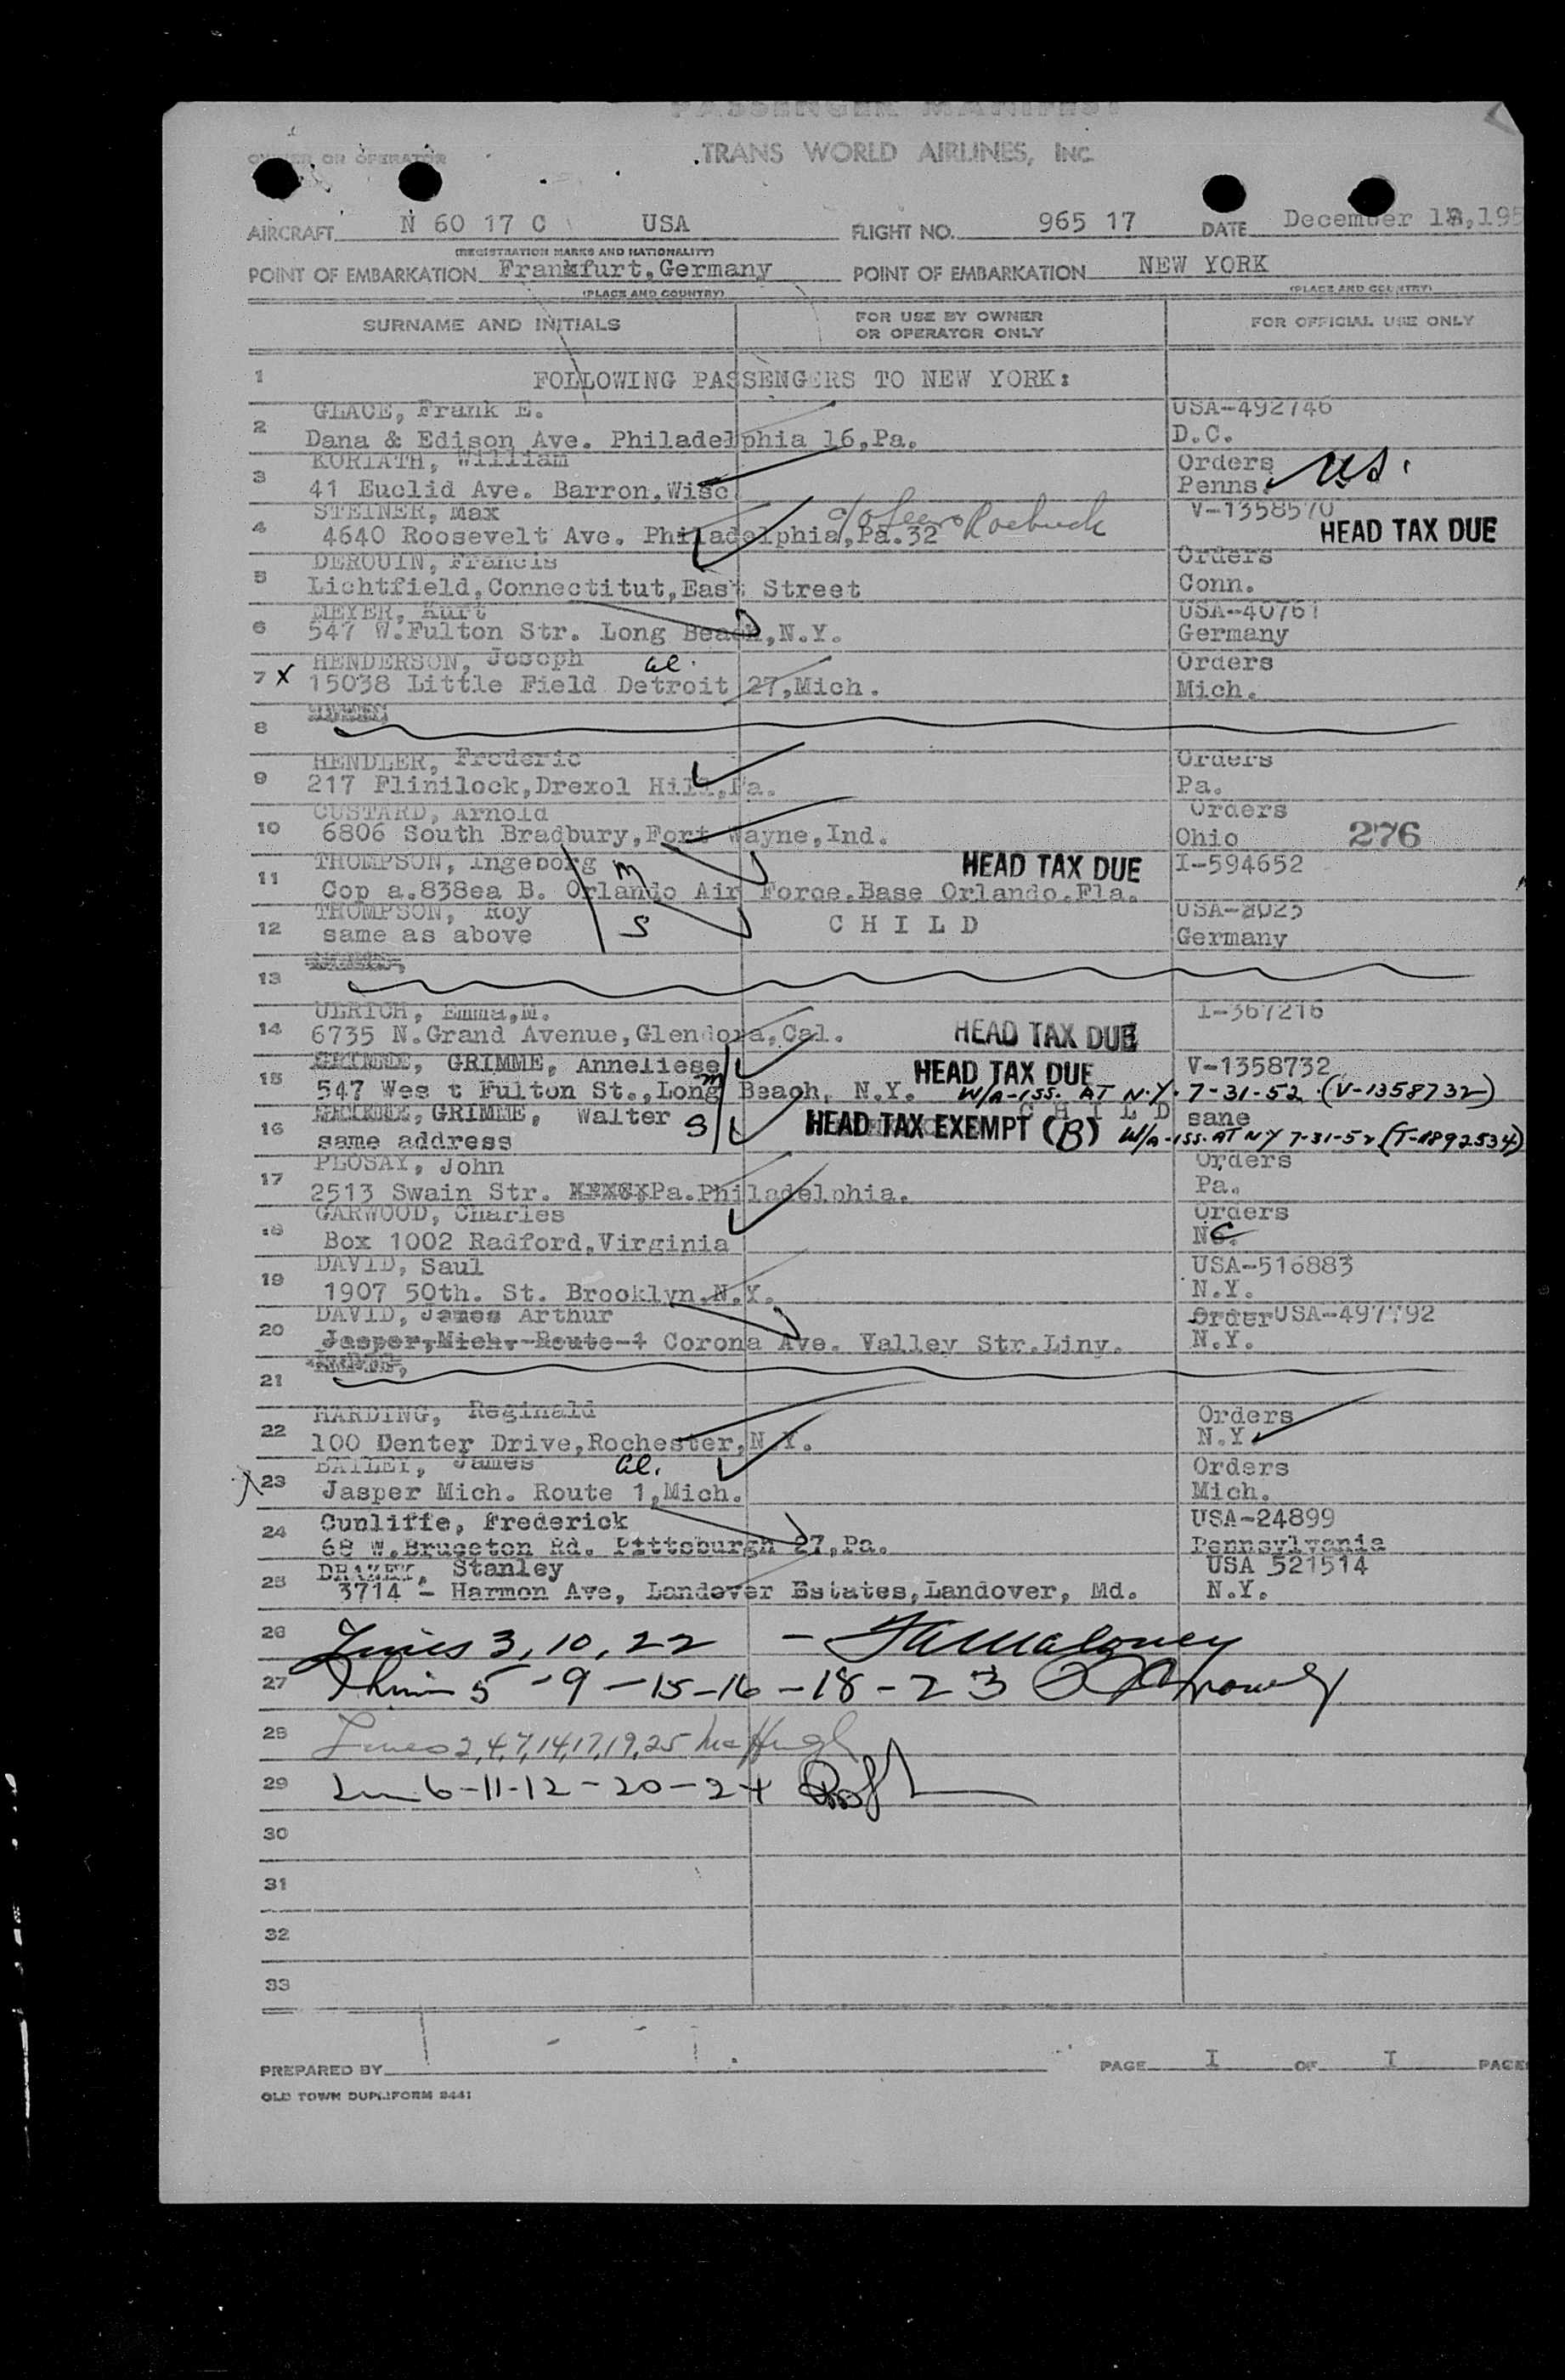 PASSENGER MANIFEST
OWNER OR OPERATOR
TRANS WORLD AIRLINES, INC
AIRCRAFT N 60 17 C USA FLIGHT NO. 965 17 DATE December 195
(REGISTRATION MARKS AND NATIONALITY)
POINT OF EMBARKATION Frankfurt,Germany POINT OF EMBARKATION NEW YORK
(PLACE AND COUNTRY) (PLACE AND COUNTRY)
SURNAME AND INITIALS FOR USE BY OWNER OR OPERATOR ONLY FOR OFFICIAL USE ONLY
1 FOLLOWING PASSENGERS TO NEW YORK:
2 GLACE, Frank E. USA-492746
Dana & Edison Ave. Philadelphia 16,Pa. D.C.
3 KORIATH, William Orders U.S.
41 Euclid Ave. Barron,Wisc. Penns.
4 STEINER, Max c/o Sears Roebuck V-1358570
4640 Roosevelt Ave. Philadelphia,Pa.32 HEAD TAX DUE
5 DEROUIN, Francis Orders
Lichtfield,Connectitut,East Street Conn.
6 MEYER, Kurt USA-40761
547 W.Fulton Str. Long Beach,N.Y. Germany
7 X HENDERSON, Joseph Orders
15038 Little Field Detroit 27,Mich. Mich.
8
9 HENDLER, Frederic Orders
217 Flinilock,Drexol Hill,Pa. Pa.
10 CUSTARD, Arnold Orders
6806 South Bradbury,Fort Wayne,Ind. Ohio 276
11 THOMPSON, Ingeborg M HEAD TAX DUE I-594652
Cop a.838ea B. Orlando Air Force.Base Orlando.Fla.
12 THOMPSON, Roy S C H I L D USA-2025
same as above Germany
13
14 ULRICH, Emma,M. I-367216
6735 N.Grand Avenue,Glendora,Cal. HEAD TAX DUE
15 GRIMME, Anneliese HEAD TAX DUE V-1358732
547 Wes t Fulton St.,Long Beach, N.Y. W/A-ISS. AT N.Y. 7-31-52 (V-1358732)
16 GRIMME, Walter S C H I L D sane
same address HEAD TAX EXEMPT (B) W/A-ISS. AT NY 7-31-52 (T-1892534)
17 PLOSAY, John Orders
2513 Swain Str. Pa.Philadelphia. Pa.
18 GARWOOD, Charles Orders
Box 1002 Radford,Virginia NC.
19 DAVID, Saul USA-516883
1907 50th. St. Brooklyn.N.Y. N.Y.
20 DAVID, James Arthur Order USA-497792
Jasper,Mich. Route 1 Corona Ave. Valley Str.Liny. N.Y.
21
22 HARDING, Reginald Orders
100 Denter Drive,Rochester,N.Y. N.Y.
23 BAILEY, James Orders
Jasper Mich. Route 1,Mich. Mich.
24 Cunliffe, Frederick USA-24899
68 W.Bruceton Rd. Pittsburgh 27,Pa. Pennsylvania
25 Stanley USA 521514
3714 - Harmon Ave, Landover Estates,Landover, Md. N.Y.
26 Lines 3, 10, 22 -
27 5-9-15-16-18-23
28 Lines 2,4,7,14,17,19,25 McHugh
29 6-11-12-20-24
30
31
32
33
PREPARED BY PAGE I OF I PAGE
OLD TOWN DUPLIFORM 8441